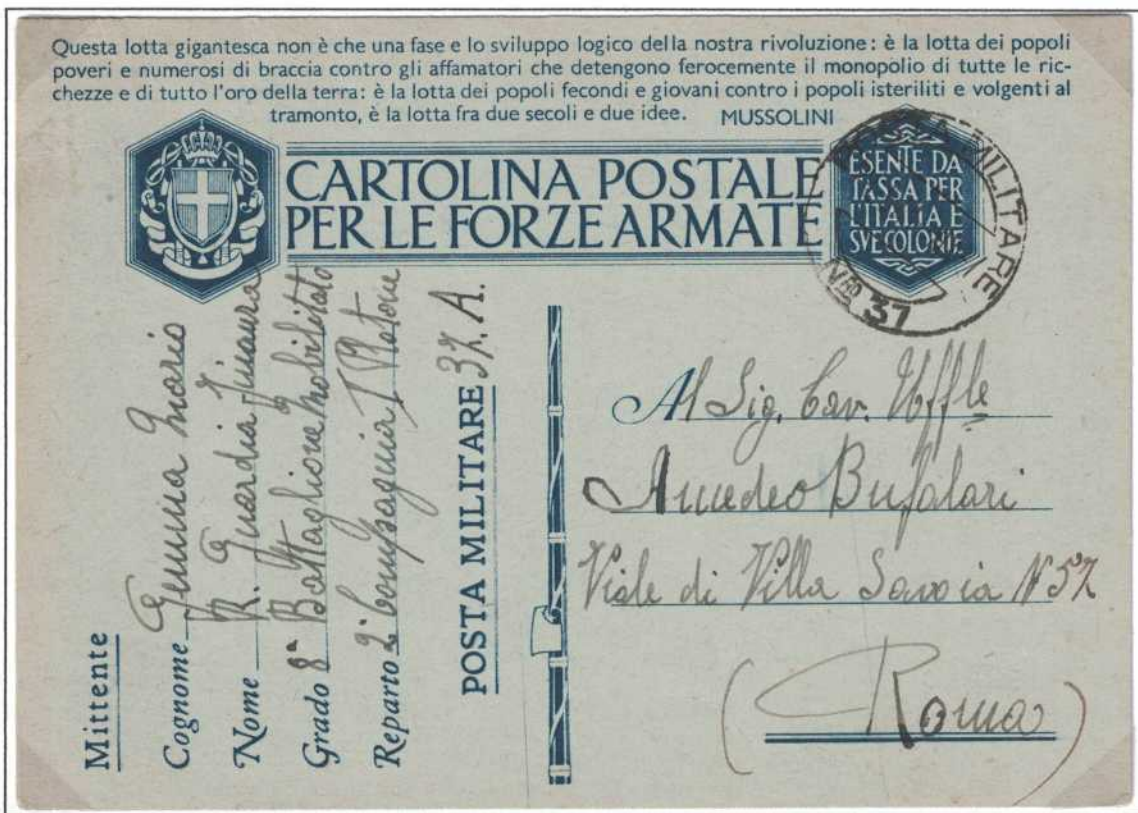 Questa lotta gigantesca non è che una fase e lo sviluppo logico della nostra rivoluzione: è la lotta dei popoli
poveri e numerosi di braccia contro gli affamatori che detengono ferocemente il monopolio di tutte le ric-
chezze e di tutto l'oro della terra: è la lotta dei popoli fecondi e giovani contro i popoli isteriliti e volgenti al
tramonto, è la lotta fra due secoli e due idee. MUSSOLINI
CARTOLINA POSTALE
PER LE FORZE ARMATE
ESENTE DA
TASSA PER
L'ITALIA E
SVE COLONIE
POSTA MILITARE
37
Mittente
Cognome Gemma Mario
Nome R. Guardia Finanza
Grado 8° Battaglione Mobilitato
Reparto 2° Compagnia I Plotone
POSTA MILITARE 37. A.
Al Sig. Cav. Uffle
Amedeo Bufalari
Viale di Villa Savoia N 57
(Roma)